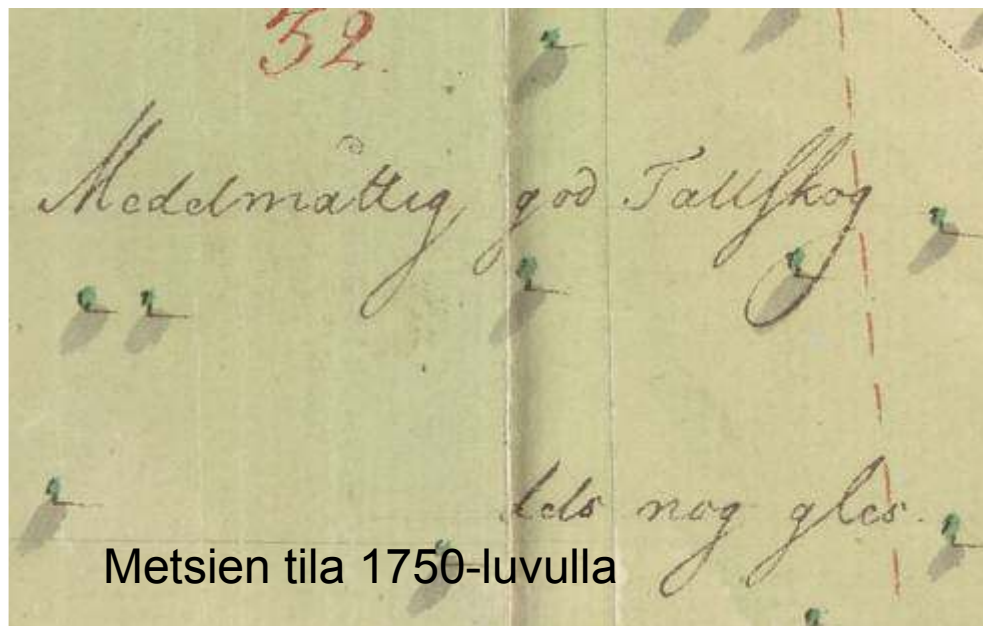 32.
Medelmåttig god Tallskog
dels nog gles.
Metsien tila 1750-luvulla